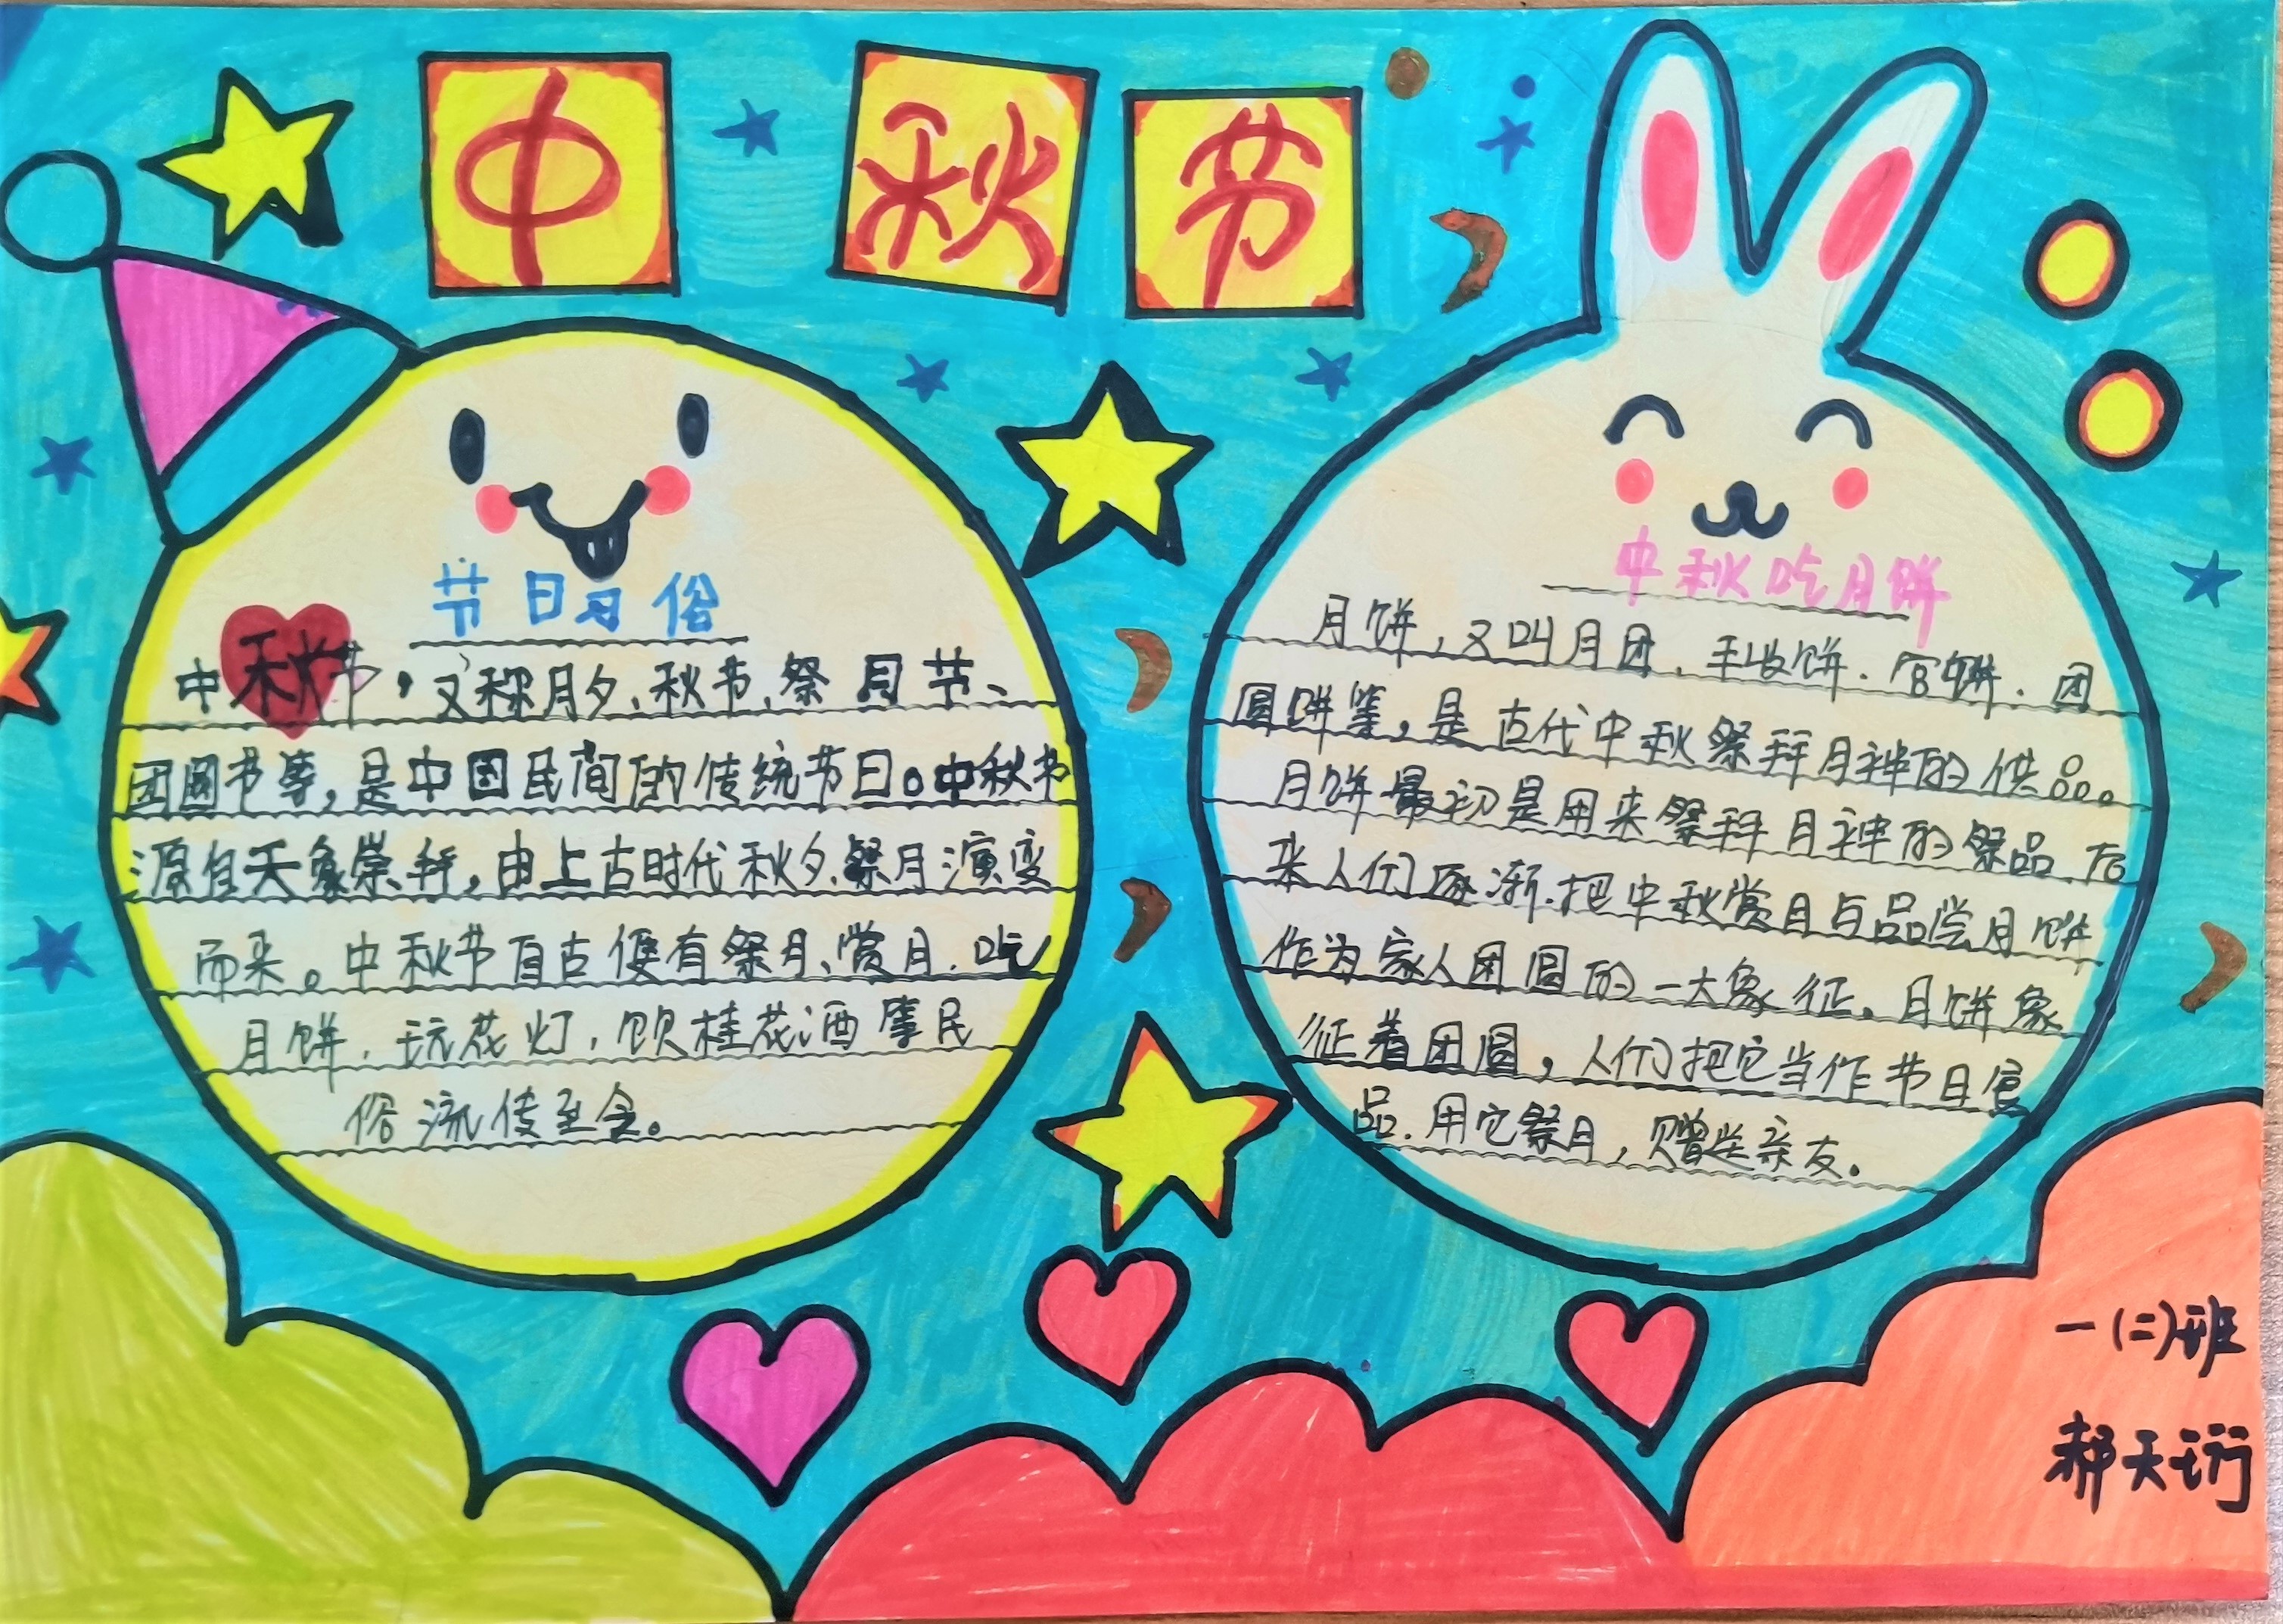 中秋节
节日习俗
中秋节,又称月夕、秋节、祭月节、
团圆节等,是中国民间的传统节日。中秋节
源自天象崇拜,由上古时代秋夕祭月演变
而来。中秋节自古便有祭月、赏月、吃
月饼、玩花灯、饮桂花酒等民
俗流传至今。
中秋吃月饼
月饼,又叫月团、丰收饼、宫饼、团
圆饼等,是古代中秋祭拜月神的供品。
月饼最初是用来祭拜月神的祭品,后
来人们逐渐把中秋赏月与品尝月饼
作为家人团圆的一大象征。月饼象
征着团圆,人们把它当作节日食
品,用它祭月,赠送亲友。
一(二)班
郝天